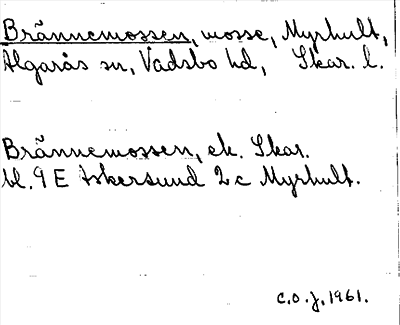 Brännemossen, mosse, Myrhult,
Älgarås sn, Vadsbo hd, Skar. l.
Brännemossen, ek. Skar.
bl. 9 E Askersund 2 c Myrhult.
C.O.J. 1961.